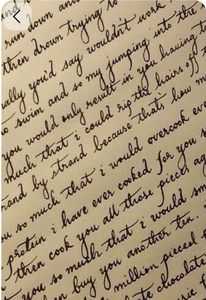 run down and
then drown trying to
ally you'd say wouldn't work
to swim and so my jumping into the
you would only result in you having t
much that i could rip the hairs off
and by strand because that's how m
you so much that i would overcook ev
protein i have ever cooked for you so
then cook you all those pieces ag
you so much that i would sm
buy you another ten.
million pieces of
to chocolate